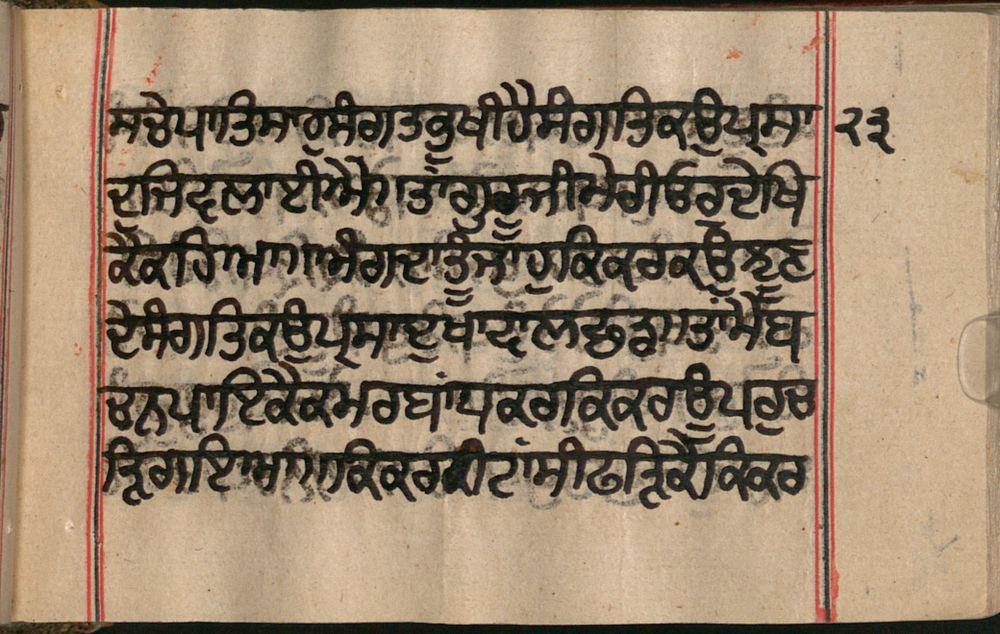 ਸਚੇਪਾਤਿਸਾਹੁਸੰਗਤਭੁਖੀਹੈਸੰਗਤਿਕਉਪ੍ਰਸਾ ੨੩
ਦੁਜਿਵਲਾਈਐਗਤਾਂਗੁਰੂਜੀਮੇਰੀਓਰੁਦੇਖਿ
ਕੈਕਹਿਆਗਅੰਗਦਾਤੂੰਜਾਹੁਕਿਕਰਕਉਲੂਣ
ਦੇਸੰਗਤਿਕਉਪ੍ਰਸਾਦੁਖਾਵਾਲਛੂੜਗਤਾਂਮੈਂਬ
ਚਨਪਾਇਕੈਕਮਰਬਾਂਧਕਰਕਿਕਰਉਪਰੁਚ
ੜ੍ਹਿਗਇਆਗਕਿਕਰਕੀਟਾਂਸੀਫੜ੍ਹਿਕੈਕਿਕਰ